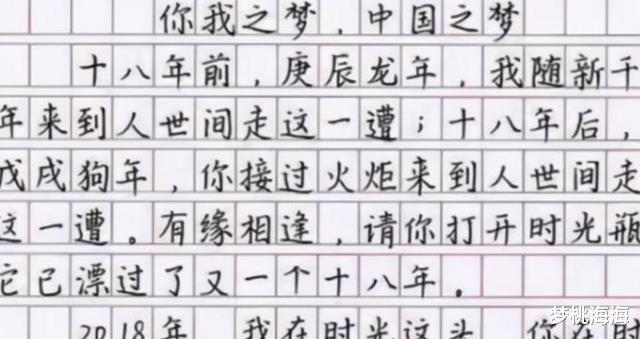 你我之梦,中国之梦
十八年前,庚辰龙年,我随新千
年来到人世间走这一遭;十八年后,
戊戌狗年,你接过火炬来到人世间走
这一遭。有缘相逢,请你打开时光瓶
它已漂过了又一个十八年。
2018年 我在时光这头 你在时
梦桃海海